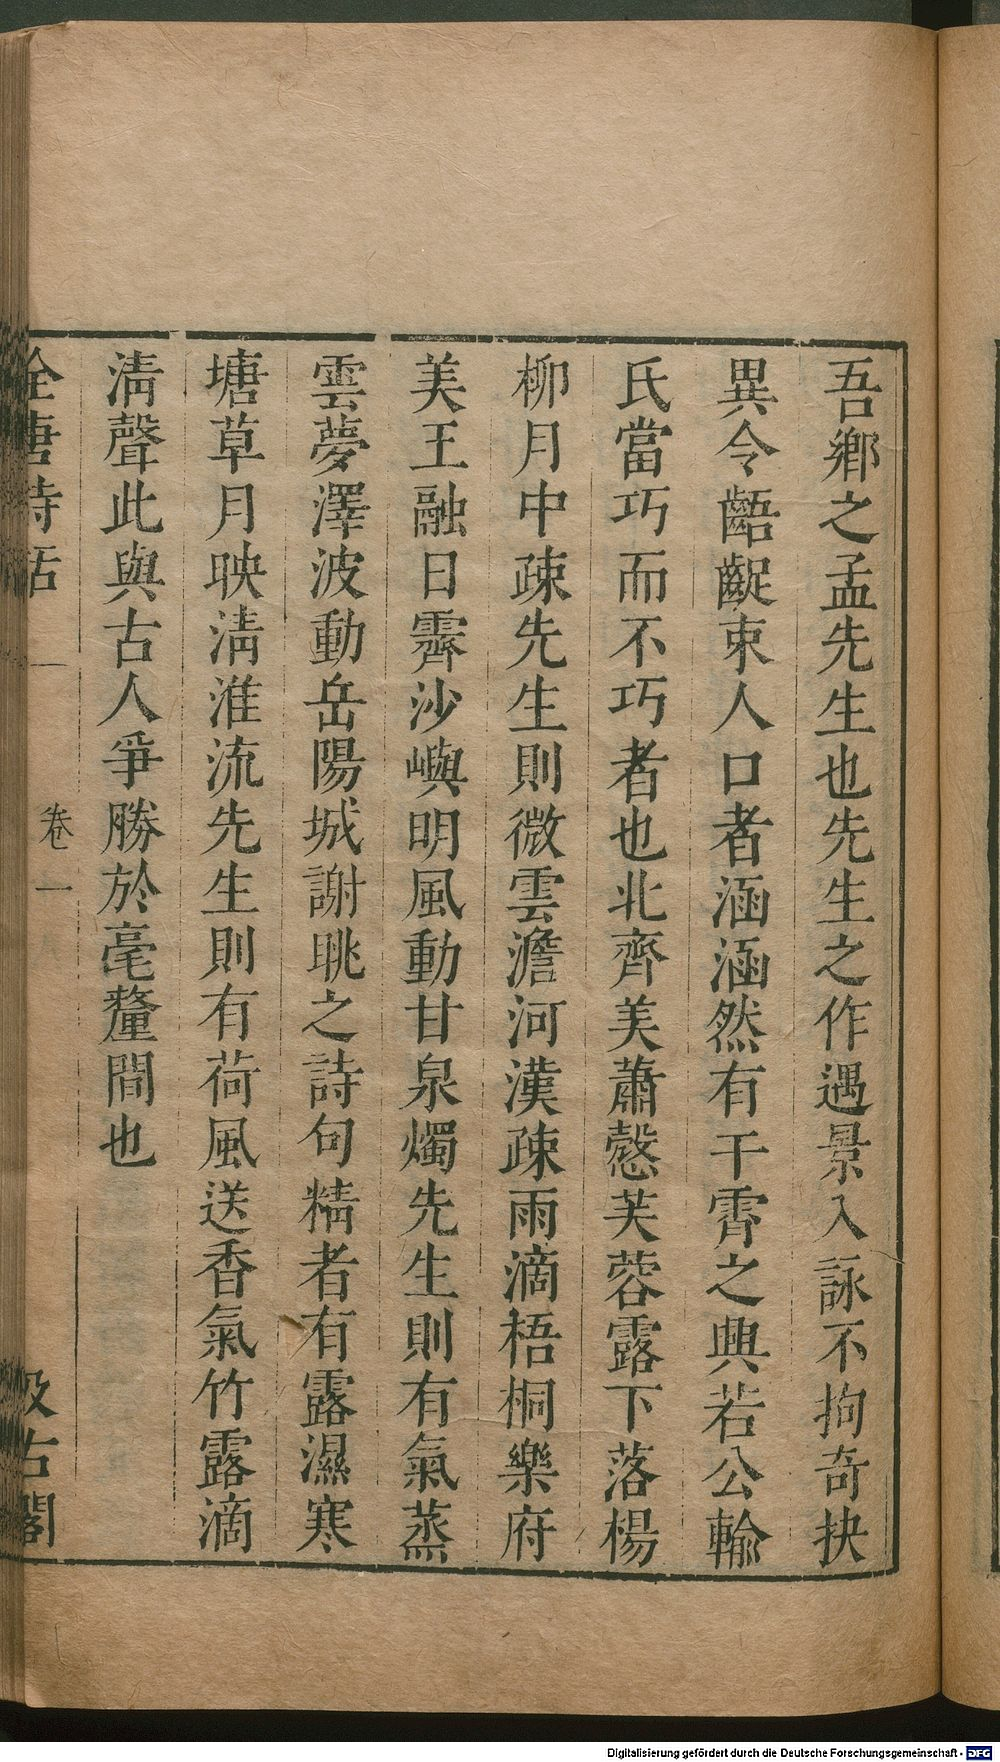 吾鄉之孟先生也先生之作遇景入詠不拘奇抉
異令齬齪束人口者涵涵然有干霄之興若公輸
氏當巧而不巧者也北齊美蕭慤芙蓉露下落楊
柳月中疎先生則微雲澹河漢疎雨滴梧桐樂府
美王融日霽沙嶼明風動甘泉燭先生則有氣蒸
雲夢澤波動岳陽城謝眺之詩句精者有露濕寒
塘草月映淸淮流先生則有荷風送香氣竹露滴
淸聲此與古人爭勝於毫釐間也
全唐詩話
卷一
汲古閣
Digitalisierung gefördert durch die Deutsche Forschungsgemeinschaft - DFG